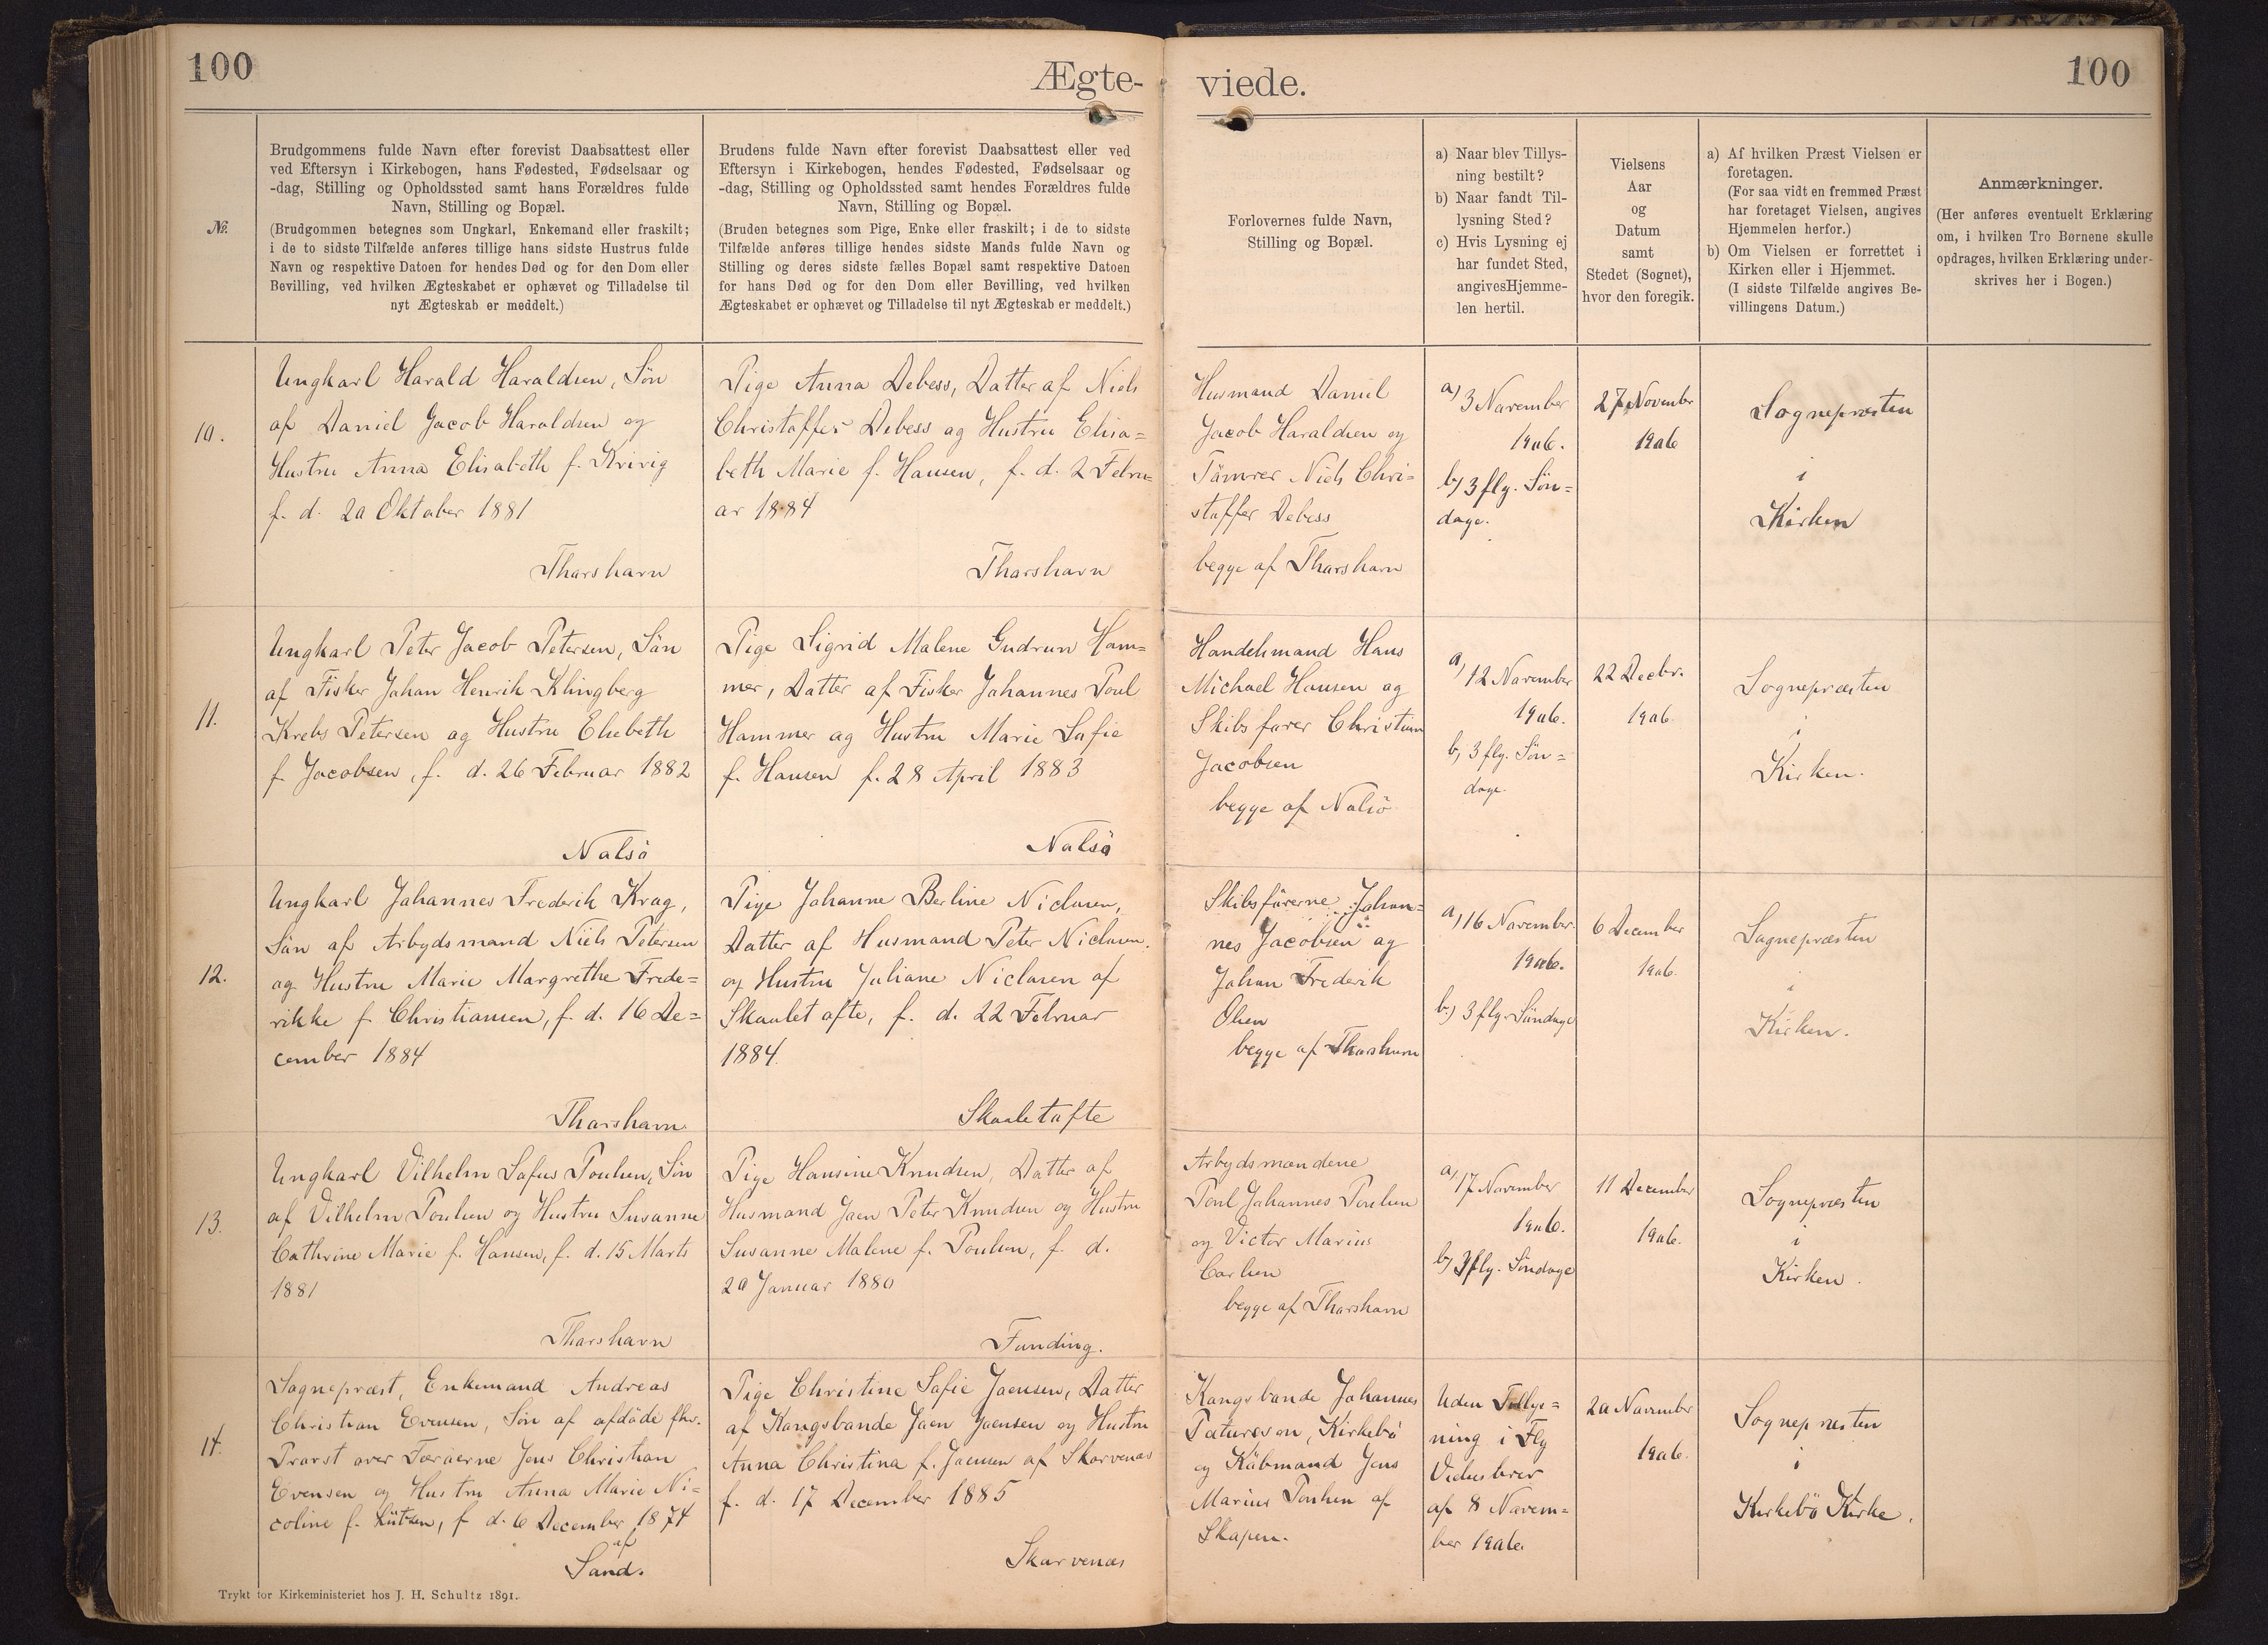 100
Ægte-
viede.
100
№.
Brudgommens fulde Navn efter forevist Daabsattest eller
ved Eftersyn i Kirkebogen, hans Fødested, Fødselsaar og
-dag, Stilling og Opholdssted samt hans Forældres fulde
Navn, Stilling og Bopæl.
(Brudgommen betegnes som Ungkarl, Enkemand eller fraskilt;
i de to sidste Tilfælde anføres tillige hans sidste Hustrus fulde
Navn og respektive Datoen for hendes Død og for den Dom eller
Bevilling, ved hvilken Ægteskabet er ophævet og Tilladelse til
nyt Ægteskab er meddelt.)
Brudens fulde Navn efter forevist Daabsattest eller ved
Eftersyn i Kirkebogen, hendes Fødested, Fødselsaar og
-dag, Stilling og Opholdssted samt hendes Forældres fulde
Navn, Stilling og Bopæl.
(Bruden betegnes som Pige, Enke eller fraskilt; i de to sidste
Tilfælde anføres tillige hendes sidste Mands fulde Navn og
Stilling og deres sidste fælles Bopæl samt respektive Datoen
for hans Død og for den Dom eller Bevilling, ved hvilken
Ægteskabet er ophævet og Tilladelse til nyt Ægteskab er meddelt.)
Forlovernes fulde Navn,
Stilling og Bopæl.
a) Naar blev Tillys-
ning bestilt?
b) Naar fandt Til-
lysning Sted?
c) Hvis Lysning ej
har fundet Sted,
angivesHjemme-
len hertil.
Vielsens
Aar
og
Datum
samt
Stedet (Sognet),
hvor den foregik.
a) Af hvilken Præst Vielsen er
foretagen.
(For saa vidt en fremmed Præst
har foretaget Vielsen, angives
Hjemmelen herfor.)
b) Om Vielsen er forrettet i
Kirken eller i Hjemmet.
(I sidste Tilfælde angives Be-
villingens Datum.)
Anmærkninger.
(Her anføres eventuelt Erklæring
om, i hvilken Tro Børnene skulle
opdrages, hvilken Erklæring under-
skrives her i Bogen.)
10.
Ungkarl Harald Haraldsen, Søn
af Daniel Jacob Haraldsen og
Hustru Anna Elisabeth f. Kvivig
f. d. 20 Oktober 1881
Thorshavn
Pige Anna Debess, Datter af Niels
Christoffer Debess og Hustru Elisa=
beth Marie f. Hansen, f. d. 2 Febru=
ar 1884
Thorshavn
Husmand Daniel
Jacob Haraldsen og
Tömrer Niels Chri=
stoffer Debess
begge af Thorshavn
a) 3 November
1906.
b) 3 flg. Søn=
dage.
27 Novembr
1906
Sognepræsten
i
Kirken
11.
Ungkarl Peter Jacob Petersen, Sön
af Fisker Johan Henrik Klingberg
Krebs Petersen og Hustru Elsebeth
f. Jacobsen, f. d. 26 Februar 1882
Nolsö
Pige Sigrid Malene Gudrun Ham=
mer, Datter af Fisker Johannes Poul
Hammer og Hustru Marie Sofie
f. Hansen f. 28 April 1883
Nolsö
Handelsmand Hans
Michael Hansen og
Skibsfører Christian
Jacobsen
begge af Nolsö
a) 12 November
1906.
b) 3 flg. Søn=
dage.
22 Decbr.
1906.
Sognepræsten
i
Kirken.
12.
Ungkarl Johannes Frederik Krag,
Sön af Arbejdsmand Niels Petersen
og Hustru Marie Margrethe Frede=
rikke f. Christiansen, f. d. 16 De=
cember 1884
Thorshavn
Pige Johanne Berline Niclasen,
Datter af Husmand Peter Niclasen
og Hustru Juliane Niclasen af
Skaaletofte, f. d. 22 Februar
1884.
Skaaletofte
Skibsförerne Johan=
nes Jacobsen og
Johan Frederik
Olsen
begge af Thorshavn
a) 16 November
1906.
b) 3 flg. Söndage
6 December
1906.
Sognepræsten
i
Kirken.
13.
Ungkarl Vilhelm Sofus Poulsen, Søn
af Vilhelm Poulsen og Hustru Susanne
Cathrine Marie f. Hansen, f. d. 15 Marts
1881
Thorshavn
Pige Hansine Knudsen, Datter af
Husmand Joen Peter Knudsen og Hustru
Susanne Malene f. Poulsen, f. d.
20 Januar 1880
Funding.
Arbejdsmændene
Poul Johannes Poulsen
og Victor Marius
Carlsen
begge af Thorshavn
a) 17 November
1906.
b) 3 flg. Söndage
11 December
1906.
Sognepræsten
i
Kirken.
14.
Sognepræst, Enkemand Andreas
Christian Evensen, Søn af afdöde fhv.
Provst over Færöerne Jens Christian
Evensen og Hustru Anna Marie Ni=
coline f. Lützen, f. d. 6 December 1874
af
Sand.
Pige Christine Sofie Joensen, Datter
af Kongsbonde Joen Joensen og Hustru
Anna Christina f. Joensen af Skorvenæs
f. d. 17 December 1885
Skorvenæs
Kongsbonde Johannes
Patursson, Kirkebö
og Köbmand Jens
Marius Poulsen af
Skopen.
Uden Tillys=
ning i Flg
Vielsesbrev
af 8 Novem=
ber 1906.
20 November
1906.
Sognepræsten
i
Kirkebö Kirke.
Trykt for Kirkeministeriet hos J. H. Schultz 1891.